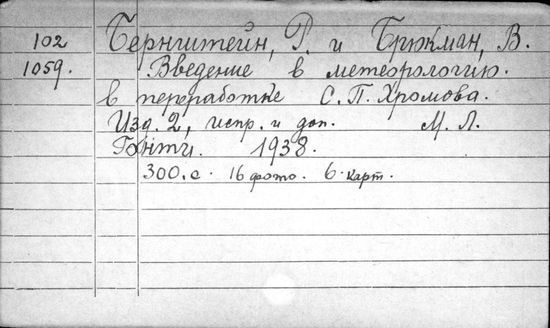 102 Бернштейн, Р. и Брюкман, В.
1059. Введение в метеорологию.
в переработке С. П. Хромова.
Изд. 2, испр. и доп. М. Л.
Гонти. 1938.
300. с. 16 фото. 6 карт.